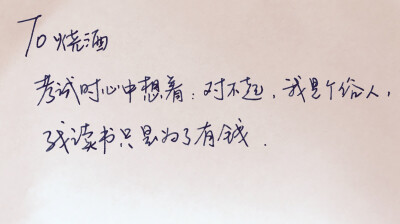 To 烧酒
考试时心中想着：对不起，我是个俗人，
我读书只是为了有钱．